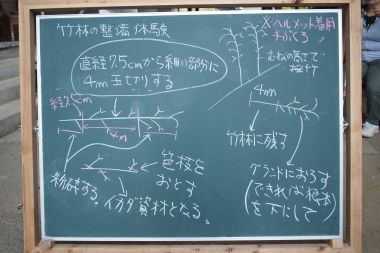 竹林の整備体験
※ヘルメット着用
手ぶくろ
直径7.5cmから細い部分に
4m玉切りする
むねの高さで
採竹
径7.5cm
4m
4m
竹林に残す
グランドにおろす
(できれば根本
を下にして)
笹枝を
おとす
粉砕する。
イカダ資材となる。